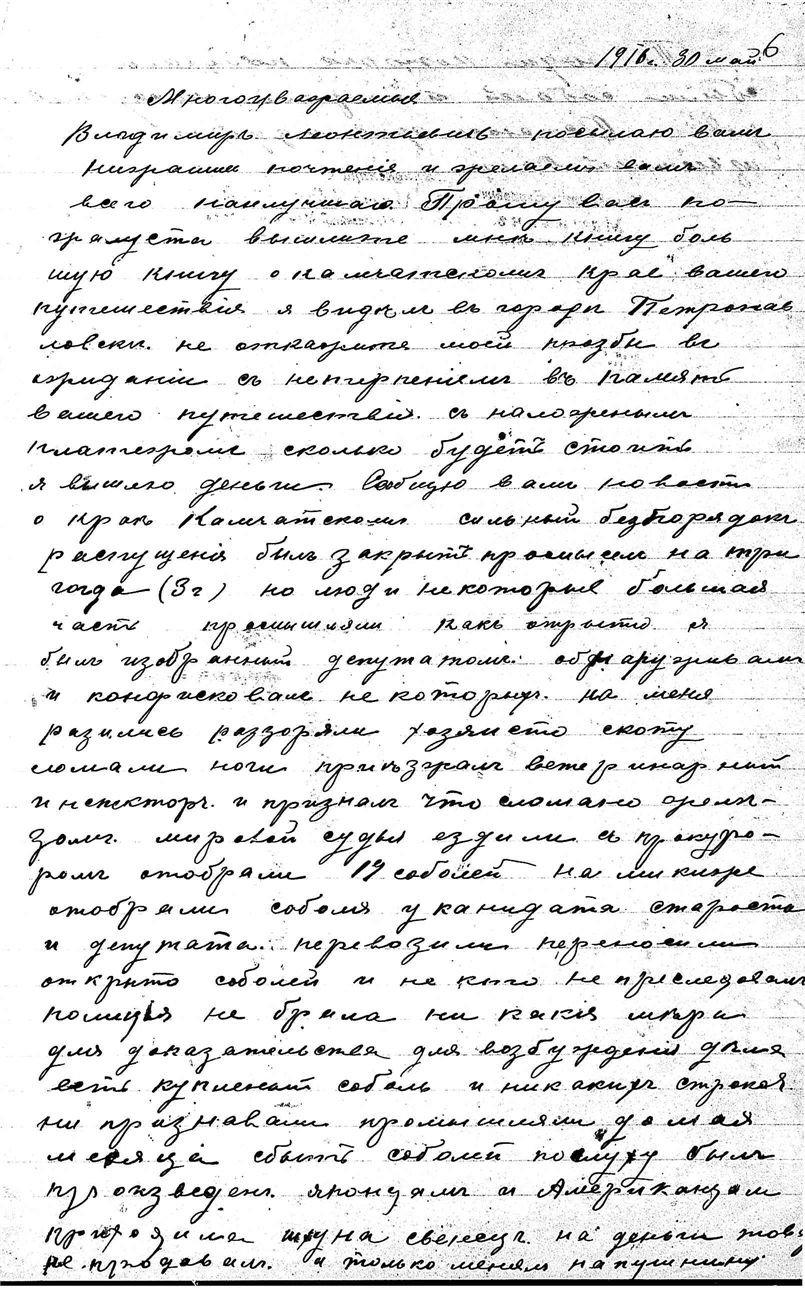 1916 г. 30 май 6
Многоуважаемыя
Владимиръ Леонтьевичъ посылаю вамъ
низрашаи почтенія и желаемъ вамъ
всего наилучшаго Прошу васъ по-
жалуста вышлите мнѣ книгу боль
шую книгу о камчатскомъ крае вашего
путешествія я видѣлъ въ городѣ Петропав
ловски. не откажите моей прозбы въ
ожиданіи съ нетерпеніемъ въ память
вашего путешествія. съ наложенымъ
платежомъ сколько будетъ стоить
я вышлю деньги. Сообщу вамъ новости
о краѣ Камчатскомъ сильный безпорядокъ
распущенія былъ закрытъ промыселъ на три
года (3 г) но люди некоторые большая
часть промышляли какъ открыто я
былъ избранный депутатомъ. обнаруживалъ
и конфисковалъ некоторыхъ. на меня
разились раззоряли хозяисто скоту
сломали ноги приѣзжалъ ветеринарный
инспекторъ. и призналъ что сломано желѣ-
зомъ. мировой судья ездили съ прокуро-
ромъ отобрали 19 соболей на микиже
отобрали соболя у канидата старосты
и депутата. перевозили переносили
открыто соболей и не кто не преследовалъ
полиція не брала ни какія мѣры
для доказательства для возбужденія дѣла
есть купленый соболь и никакихъ строкоя
ни признавали промышляли до мая
месяца сбытъ соболей послуху былъ
произведенъ. японцамъ и Американцам
приходила шхуна свенсцъ. на деньги тову
не продовалъ. а только менялъ на пушнину.